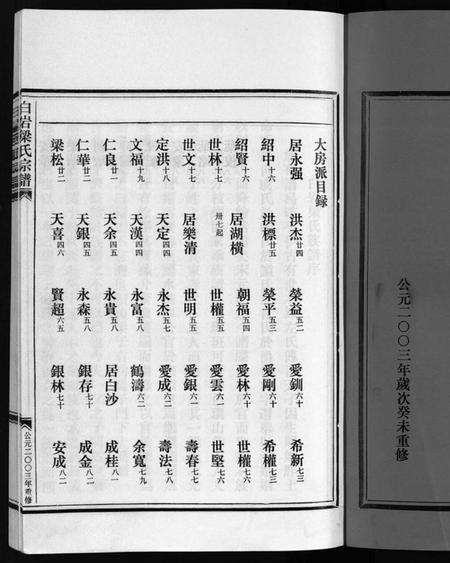 大房派目録
居永强 洪杰廿四 榮益五二 愛釧六十 希新七三
紹中十六 洪標廿五 榮平五三 愛剛六十 希權七三
紹賢十六 居湖横 朝福五四 愛林六十 世權七六
世林十七 卅七起 世權五五 愛雲六一 世堅七六
世文十七 居樂清 世明五五 愛銀六一 壽春七七
定洪十八 天定四四 永杰五七 愛成六二 壽法七八
文福十九 天漢四四 永富五八 鶴濤六二 余寬七九
仁良廿一 天余四五 永貴五八 居白沙 成桂八一
仁華廿二 天銀四五 永森五八 銀存七十 成金八二
梁松廿二 天喜四六 賢超六五 銀林七十 安成八二
白岩梁氏宗譜
公元二〇〇三年重修
公元二〇〇三年歲次癸未重修